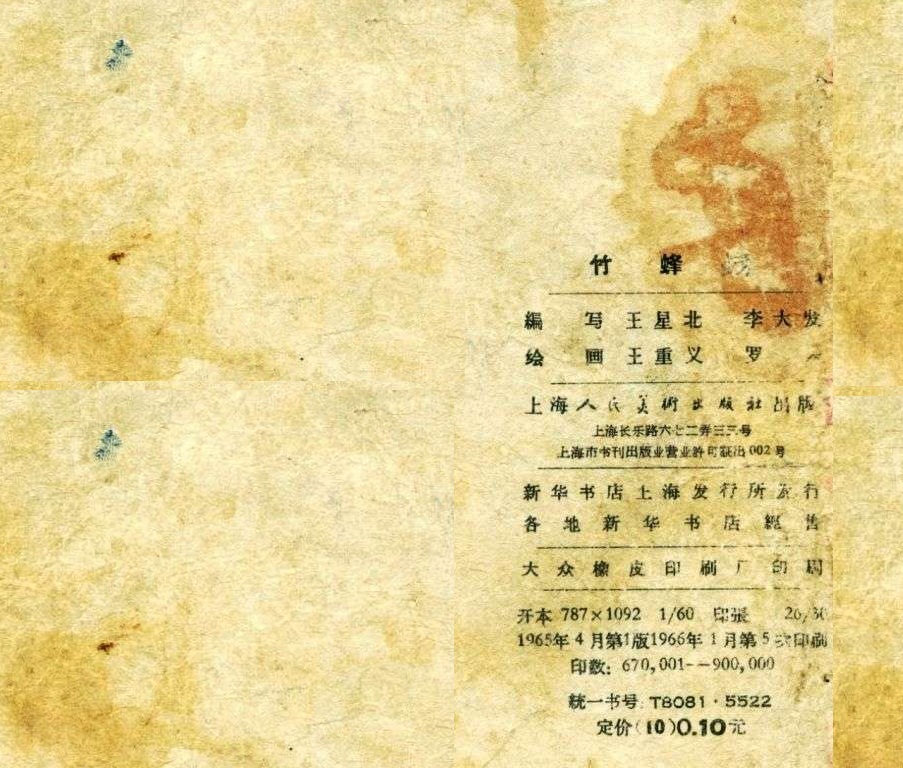 竹 蜂
編 写 王 星 北 李 大 发
绘 画 王 重 义 罗
上 海 人 民 美 術 出 版 社 出 版
上海长乐路六七二弄三三号
上海市书刊出版业营业許可証出002号
新 华 书 店 上 海 发 行 所 发 行
各 地 新 华 书 店 經 售
大 众 橡 皮 印 刷 厂 印 刷
开本 787×1092 1/60 印張 26/30
1965年 4 月第1版1966年 1 月第 5 次印刷
印数: 670,001--900,000
統一书号 T8081·5522
定价(10)0.10元